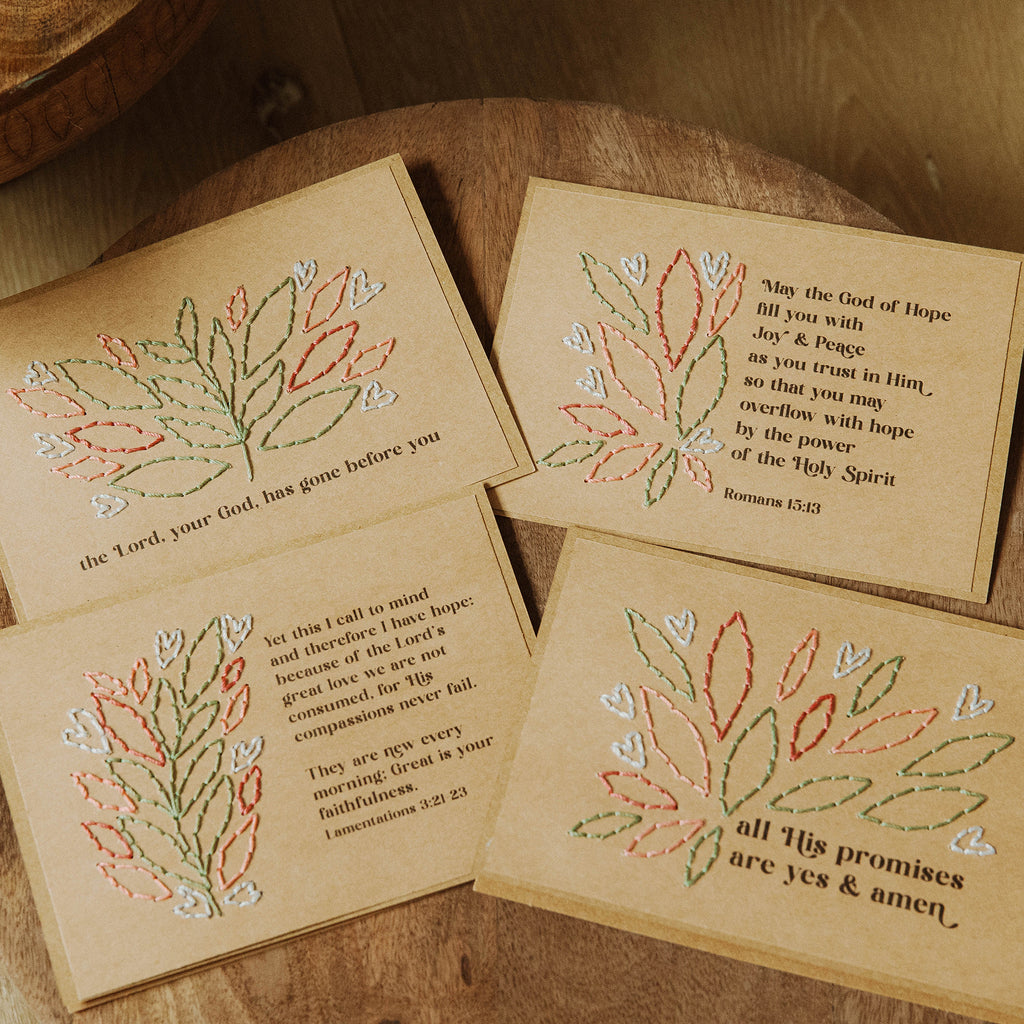 the Lord, your God, has gone before you
May the God of Hope
fill you with
Joy & Peace
as you trust in Him
so that you may
overflow with hope
by the power
of the Holy Spirit
Romans 15:13
Yet this I call to mind
and therefore I have hope:
because of the Lord's
great love we are not
consumed, for His
compassions never fail.
They are new every
morning; Great is your
faithfulness.
Lamentations 3:21-23
all His promises
are yes & amen